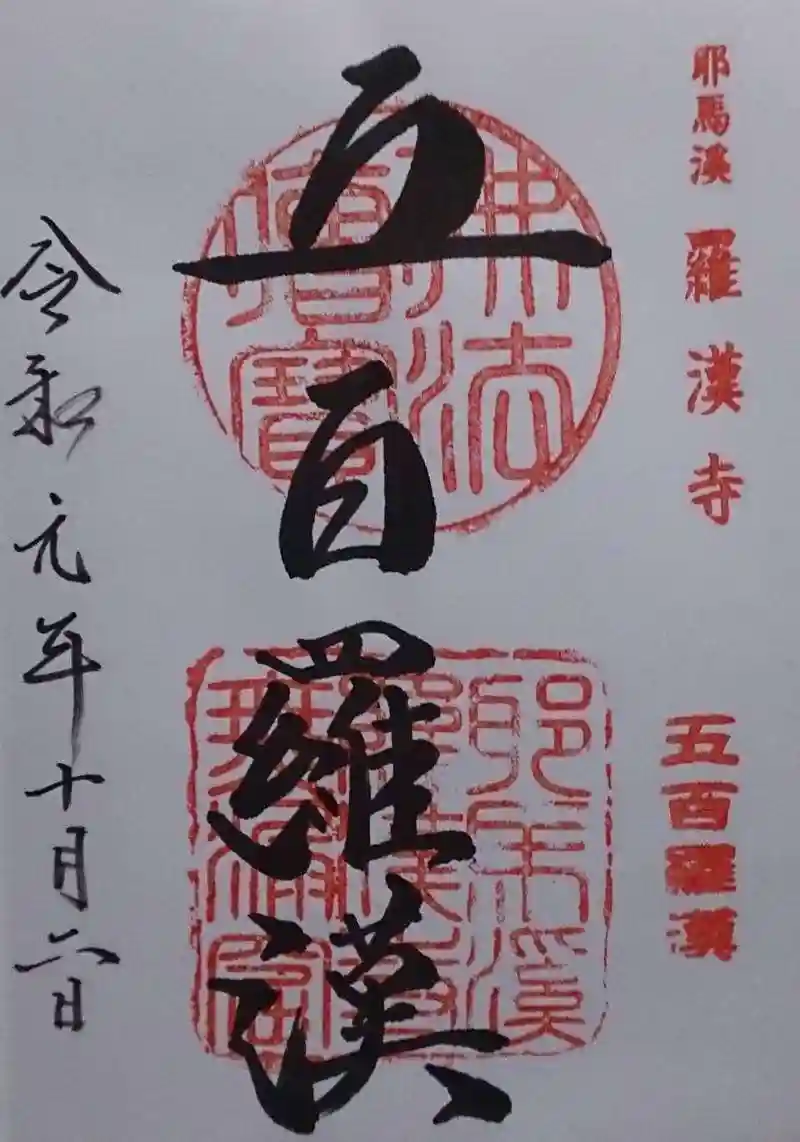 耶馬溪 羅漢寺
五百羅漢
五百羅漢
佛法
僧寶
耶馬溪
羅漢寺
無漏窟
令和元年十月六日